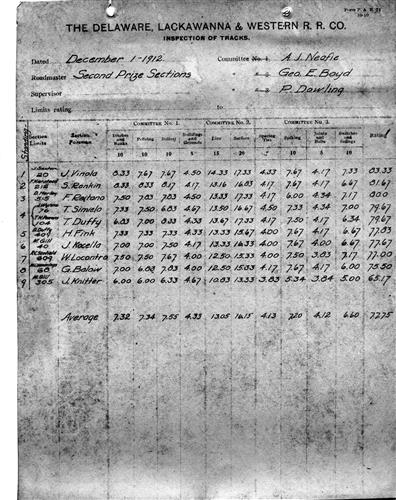 THE DELAWARE, LACKAWANNA & WESTERN R. R. CO.
INSPECTION OF TRACKS.
Dated December 1-1912 Committee No. 1. A. J. Neafie
Roadmaster Second Prize Sections " " 2. Geo. E. Boyd
Supervisor " " 3. P. Dowling
Limits rating to
COMMITTEE No. 1. COMMITTEE No. 2. COMMITTEE No. 3.
Standing Section Limits Section Foreman Ditches and Roadbed Policing Ballast Buildings and Grounds Line Surface Spacing Ties Spiking Joints and Bolts Switches and Frogs RATING
10 10 10 5 15 20 5 10 5 10
1 20 J. Vinola 8.33 7.67 7.67 4.50 14.33 17.33 4.33 7.67 4.17 7.33 83.33
2 212 S. Renkin 8.33 8.33 8.17 4.17 13.16 16.83 4.17 7.67 4.17 6.67 81.67
3 515 F. Raitano 7.50 7.83 7.83 4.50 13.33 17.33 4.17 6.00 4.34 7.17 80.0
4 76 T. Simielo 7.33 7.50 6.83 4.67 13.50 16.67 4.50 7.33 4.34 7.00 79.67
5 104 T. Duffy 6.83 7.00 8.33 4.33 13.67 17.33 4.17 7.50 4.17 6.34 79.67
6 409 H. Fink 7.33 7.33 7.33 4.33 13.33 15.67 4.00 7.67 4.17 6.67 77.83
7 40 J. Nocella 7.00 7.00 7.50 4.17 13.33 16.33 4.00 7.67 4.00 6.67 77.67
8 609 W. Locantra 7.50 7.50 7.67 4.00 12.50 15.33 4.00 7.50 3.83 7.17 77.00
68 G. Balow 7.00 6.83 7.83 4.00 12.50 15.83 4.17 7.67 4.17 6.00 75.50
9 305 J. Knitter 6.00 6.00 6.33 4.67 10.83 13.33 3.83 5.34 3.84 5.00 65.17
Average 7.32 7.34 7.55 4.33 13.05 16.15 4.13 7.20 4.12 6.60 77.75